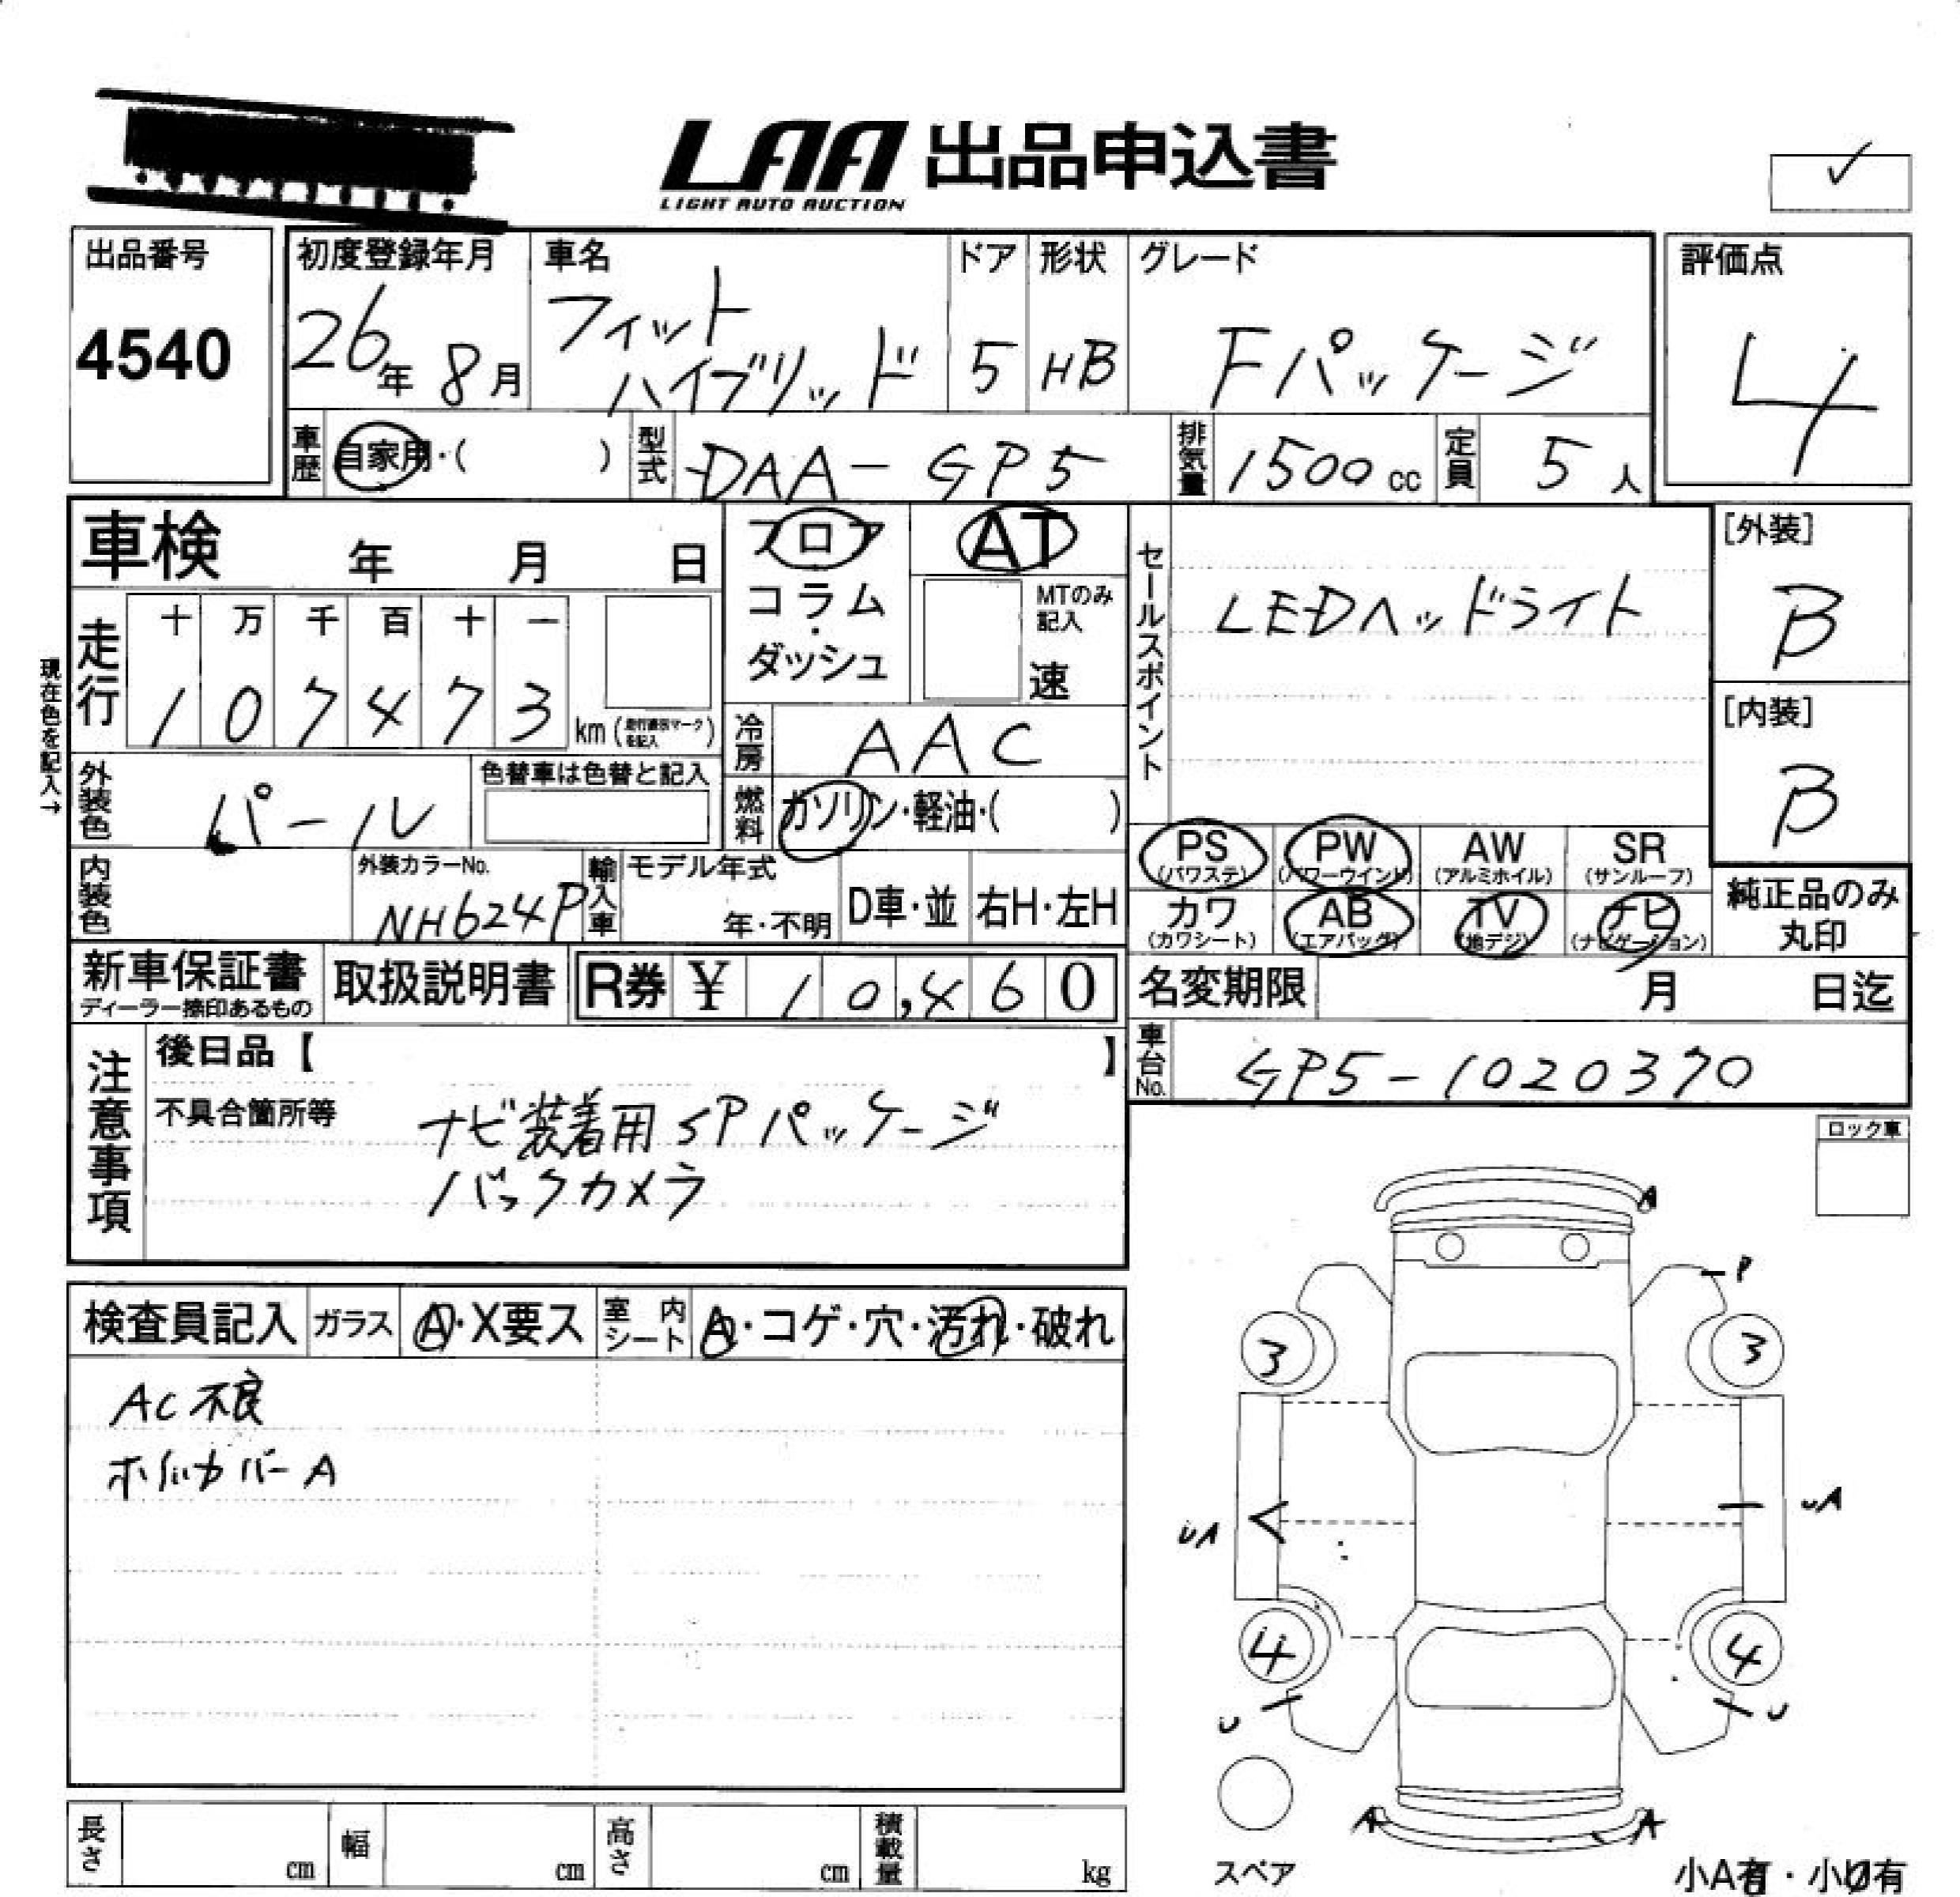 LAA 出品申込書
LIGHT AUTO AUCTION
✓
出品番号
4540
初度登録年月
26年 8月
車名
フィット
ハイブリッド
ドア
5
形状
HB
グレード
Fパッケージ
評価点
4
車歴
自家用・( )
型式
DAA-GP5
排気量
1500cc
定員
5人
車検 年 月 日
フロア
コラム
・
ダッシュ
AT
MTのみ
記入
速
セールスポイント
LEDヘッドライト
[外装]
B
[内装]
B
現在色を記入→
走行
十 万 千 百 十 一
1 0 7 4 7 3
km( を記入 )
冷房
AAC
外装色
パール
色替車は色替と記入
燃料
ガソリン・軽油・( )
PS
(パワステ)
PW
(パワーウインド)
AW
(アルミホイル)
SR
(サンルーフ)
内装色
外装カラーNo.
NH624P
輸入車
モデル年式
年・不明
D車・並
右H・左H
カワ
(カワシート)
AB
(エアバッグ)
TV
(地デジ)
ナビ
(ナビゲーション)
純正品のみ
丸印
新車保証書
ディーラー捺印あるもの
取扱説明書
R券 ¥ 10,460
名変期限 月 日迄
注意事項
後日品【 】
不具合箇所等
ナビ装着用SPパッケージ
バックカメラ
車台No.
GP5-1020370
ロック車
検査員記入
ガラス
A・X要ス
室内
シート
A・コゲ・穴・汚れ・破れ
AC不良
ホイルカバーA
A
P
3
3
UA
UA
4
4
U
U
A
A
スペア
小A有・小U有
長さ cm
幅 cm
高さ cm
積載量 kg